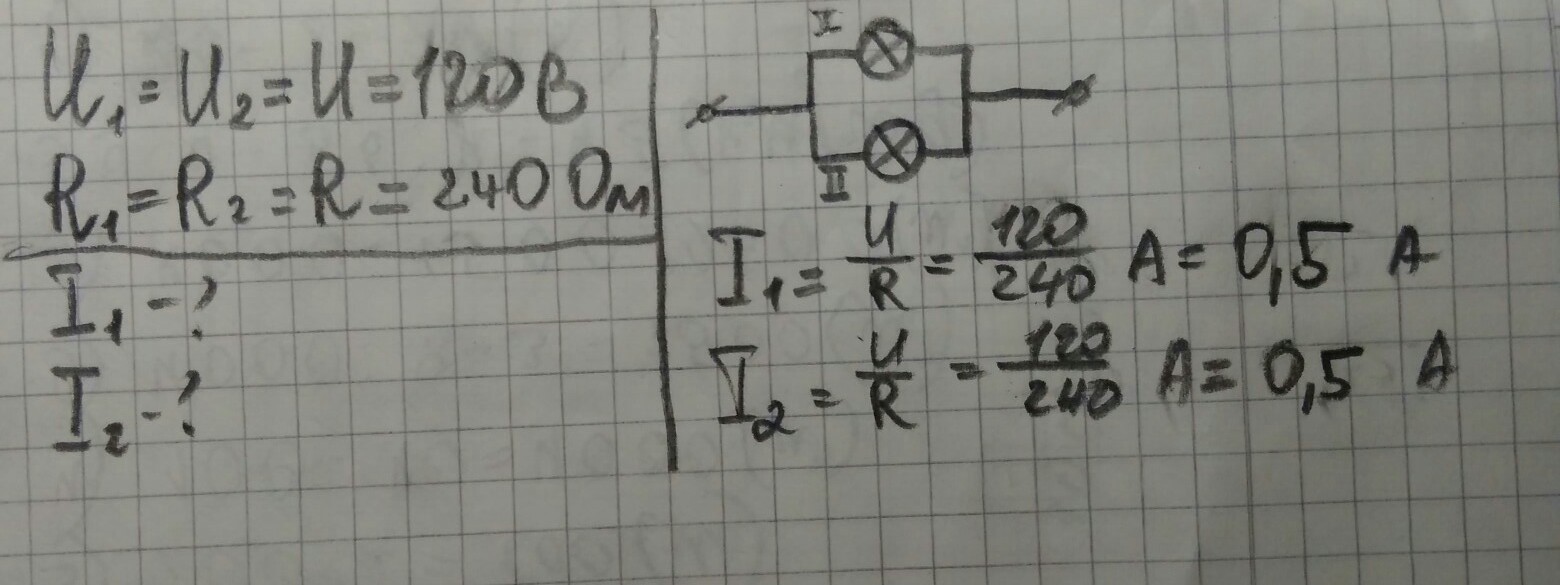 U₁ = U₂ = U = 120 В
R₁ = R₂ = R = 240 Ом
I₁ - ?
I₂ - ?
I
II
I₁ = U/R = 120/240 А = 0,5 А
I₂ = U/R = 120/240 А = 0,5 А